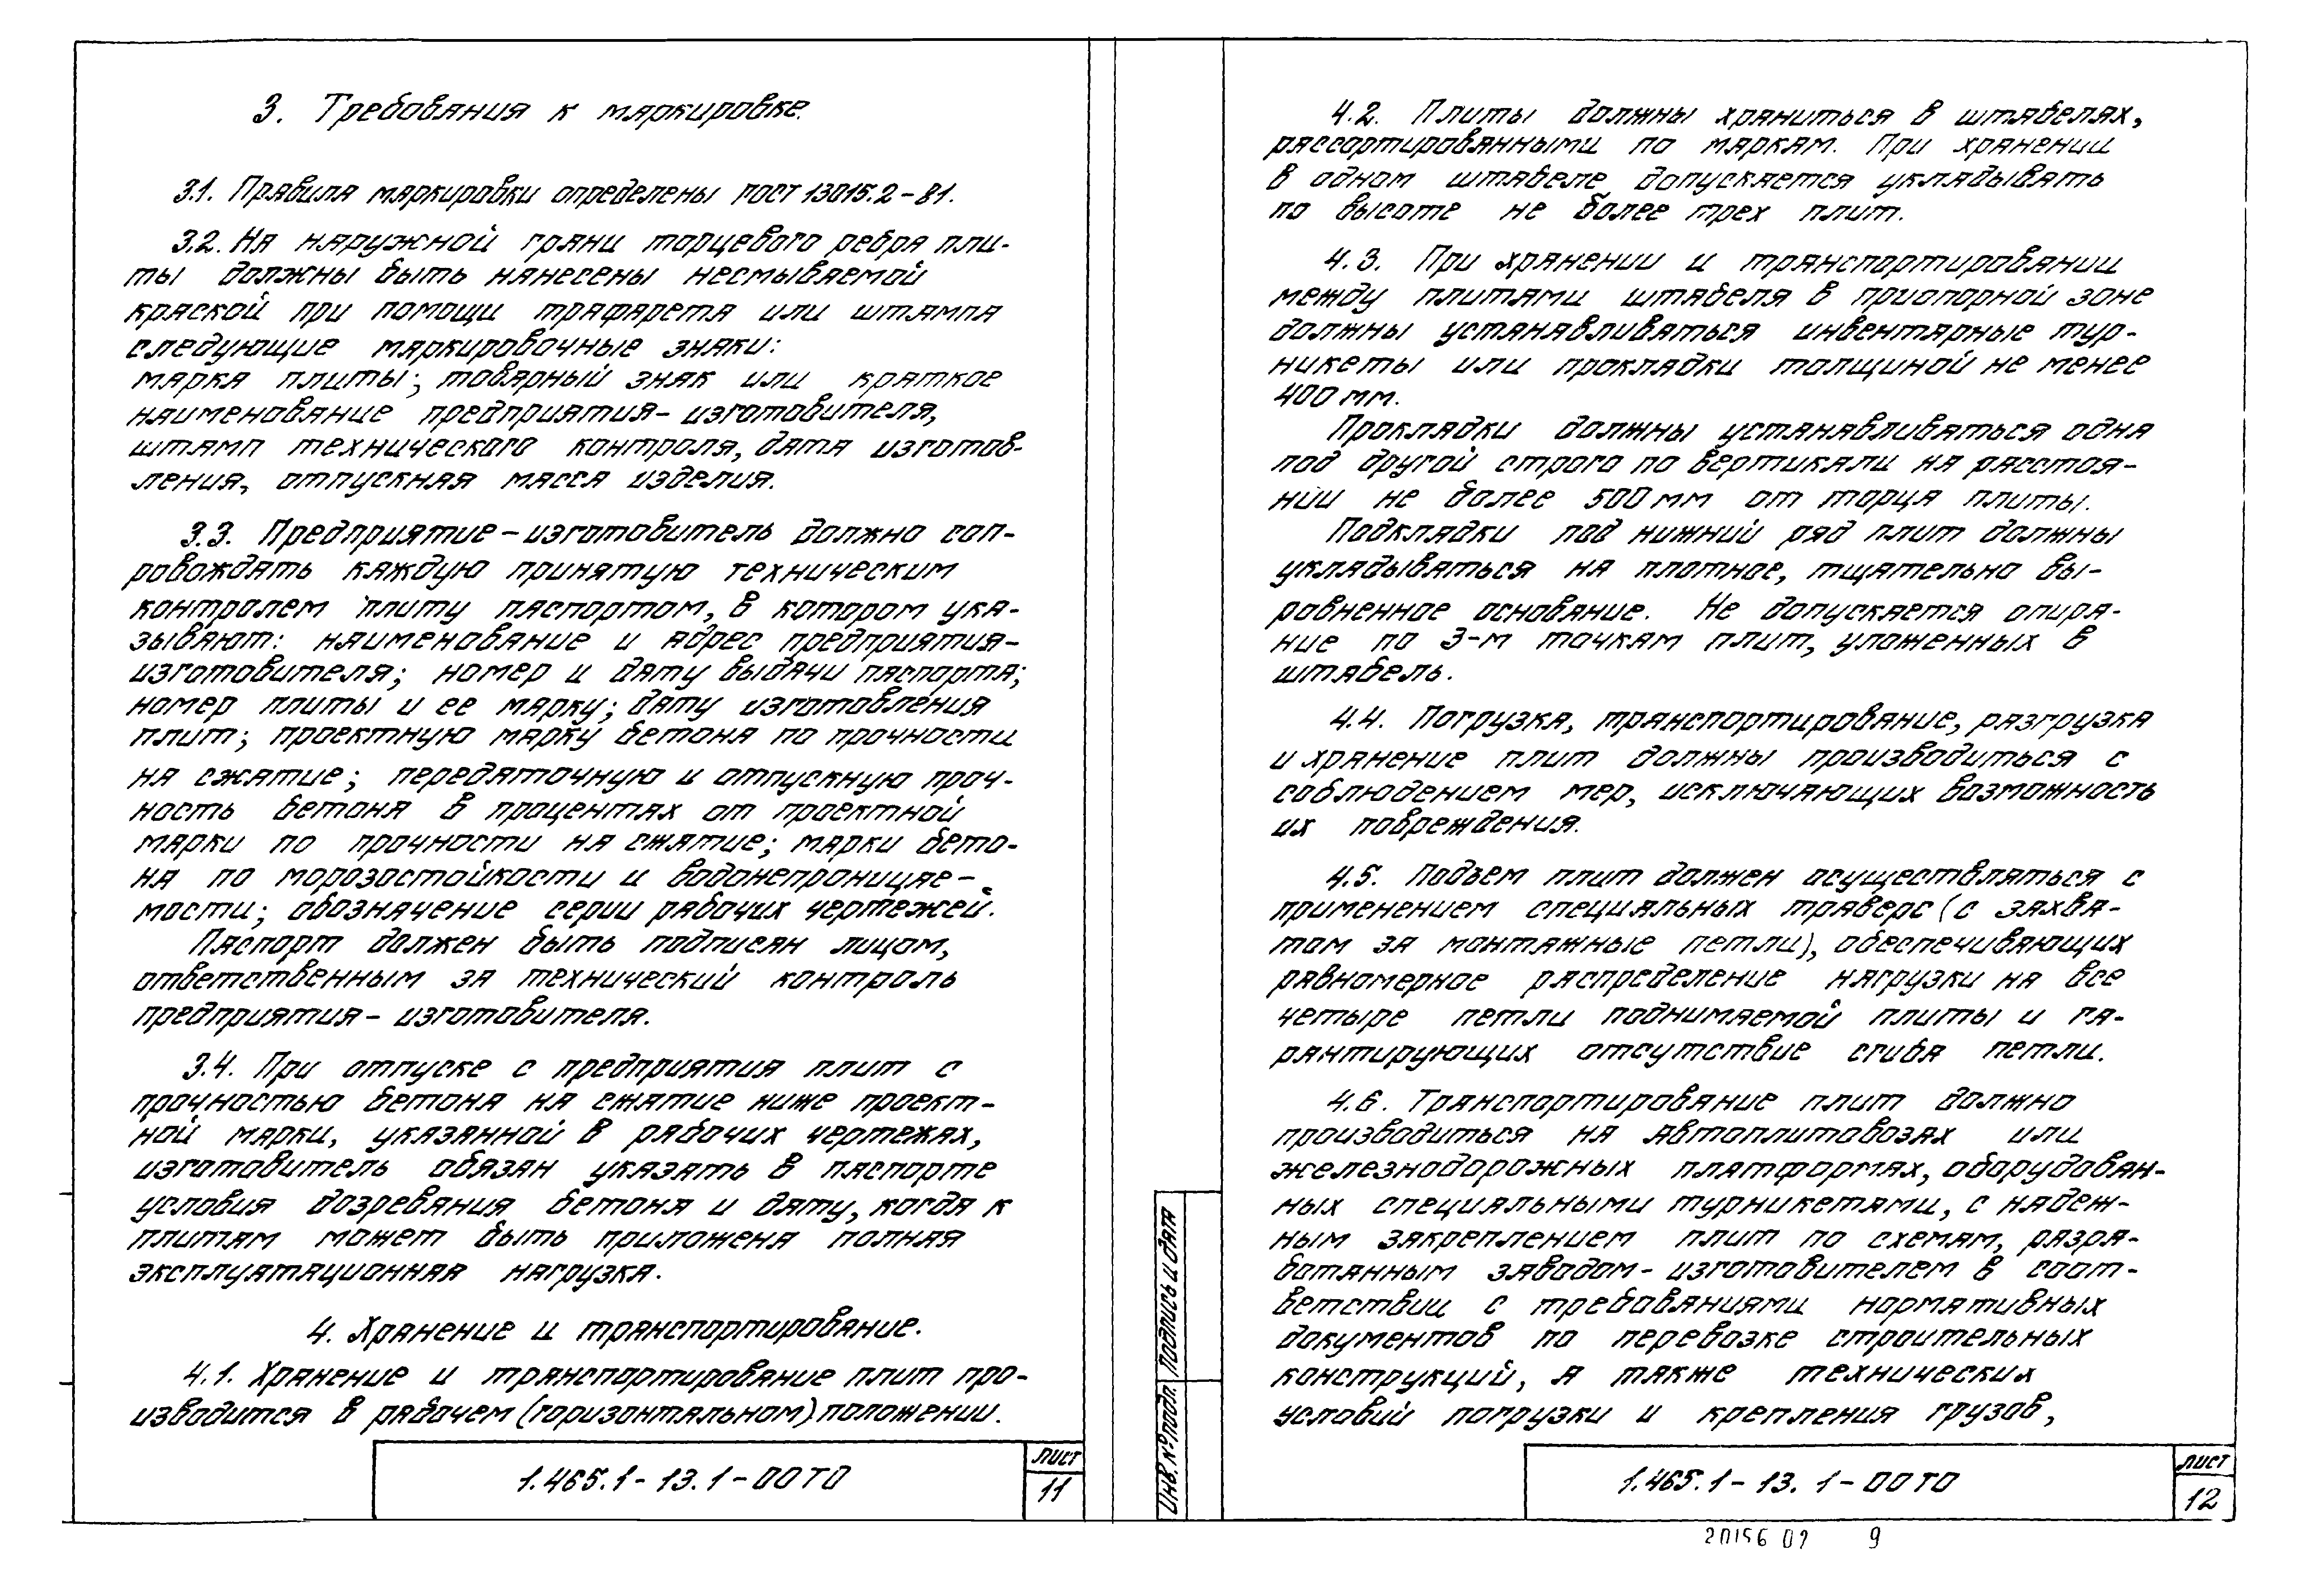 3. Требования к маркировке.
3.1. Правила маркировки определены ГОСТ 13015.2-81.
3.2. На наружной грани торцевого ребра пли-
ты должны быть нанесены несмываемой
краской при помощи трафарета или штампа
следующие маркировочные знаки:
марка плиты; товарный знак или краткое
наименование предприятия-изготовителя,
штамп технического контроля, дата изготов-
ления, отпускная масса изделия.
3.3. Предприятие-изготовитель должно соп-
ровождать каждую принятую техническим
контролем плиту паспортом, в котором ука-
зывают: наименование и адрес предприятия-
изготовителя; номер и дату выдачи паспорта;
номер плиты и ее марку; дату изготовления
плит; проектную марку бетона по прочности
на сжатие; передаточную и отпускную проч-
ность бетона в процентах от проектной
марки по прочности на сжатие; марки бето-
на по морозостойкости и водонепроницае-
мости; обозначение серии рабочих чертежей.
Паспорт должен быть подписан лицом,
ответственным за технический контроль
предприятия-изготовителя.
3.4. При отпуске с предприятия плит с
прочностью бетона на сжатие ниже проект-
ной марки, указанной в рабочих чертежах,
изготовитель обязан указать в паспорте
условия дозревания бетона и дату, когда к
плитам может быть приложена полная
эксплуатационная нагрузка.
4. Хранение и транспортирование.
4.1. Хранение и транспортирование плит про-
изводится в рабочем (горизонтальном) положении.
1.465.1-13.1-00ТО
лист
11
4.2. Плиты должны храниться в штабелях,
рассортированными по маркам. При хранении
в одном штабеле допускается укладывать
по высоте не более трех плит.
4.3. При хранении и транспортировании
между плитами штабеля в приопорной зоне
должны устанавливаться инвентарные тур-
никеты или прокладки толщиной не менее
400 мм.
Прокладки должны устанавливаться одна
под другой строго по вертикали на расстоя-
нии не более 500 мм от торца плиты.
Подкладки под нижний ряд плит должны
укладываться на плотное, тщательно вы-
ровненное основание. Не допускается опира-
ние по 3-м точкам плит, уложенных в
штабель.
4.4. Погрузка, транспортирование, разгрузка
и хранение плит должны производиться с
соблюдением мер, исключающих возможность
их повреждения.
4.5. Подъем плит должен осуществляться с
применением специальных траверс (с захва-
том за монтажные петли), обеспечивающих
равномерное распределение нагрузки на все
четыре петли поднимаемой плиты и га-
рантирующих отсутствие сгиба петли.
4.6. Транспортирование плит должно
производиться на автоплитовозах или
железнодорожных платформах, оборудован-
ных специальными турникетами, с надеж-
ным закреплением плит по схемам, разра-
ботанным заводом-изготовителем в соот-
ветствии с требованиями нормативных
документов по перевозке строительных
конструкций, а также технических
условий погрузки и крепления грузов,
Инв. № подл. Подпись и дата
1.465.1-13.1-00ТО
лист
12
20156 02 9